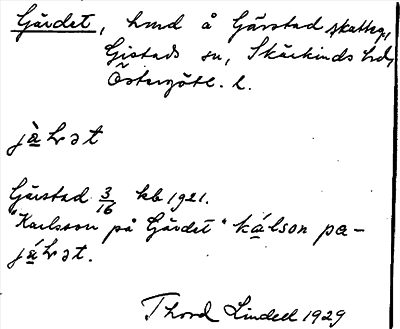 Gärdet, hmd å Gärstad skatteg.,
Gistads sn, Skärkinds hd,
Östergötl. l.
jà̱ꞎət
Gärstad 3/16 kb 1921.
"Karlsson på Gärdet" ká̱lson pa-
já̱ꞎət.
Thord Lindell 1929